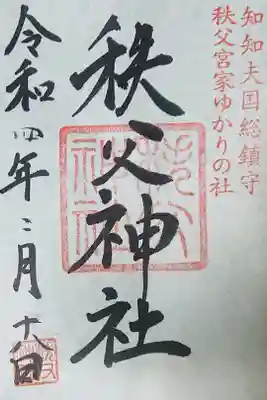 知知夫国総鎮守
秩父宮家ゆかりの社
秩父神社
令和四年二月十八日